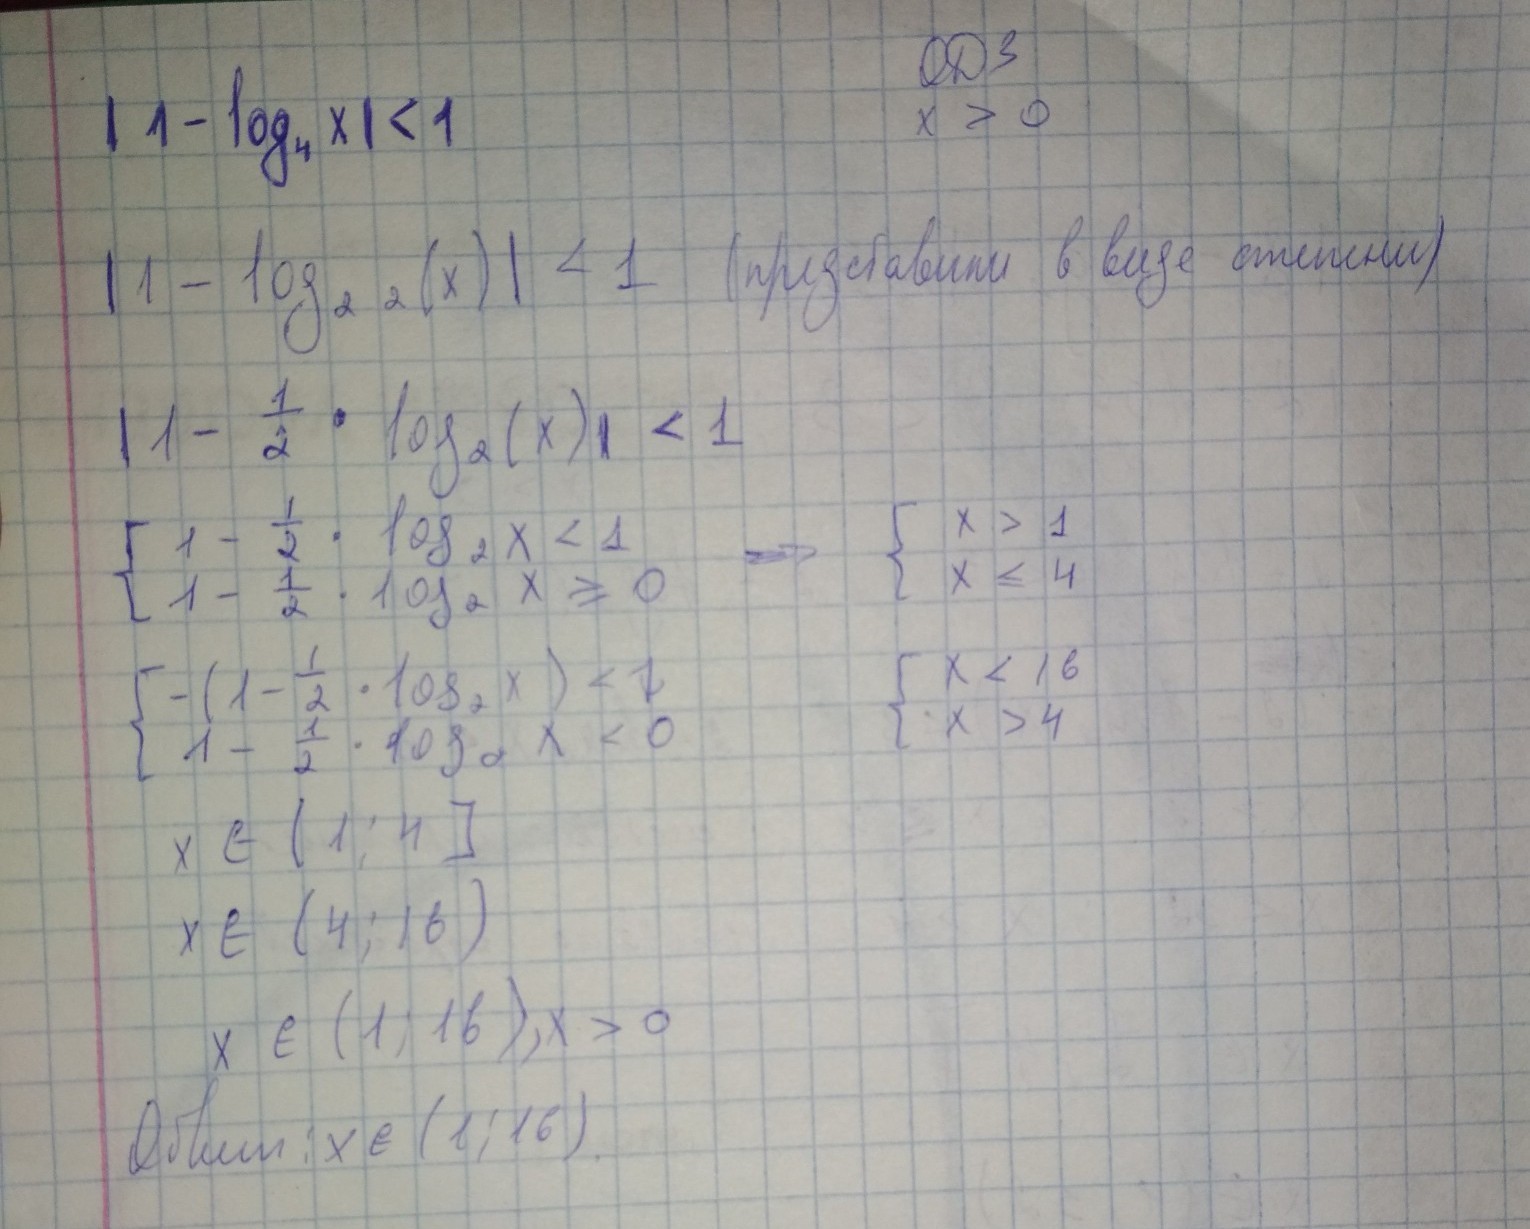 ОДЗ
|1 - log₄ x| < 1
x > 0
|1 - log₂ ₂(x)| < 1 (представим в виде степени)
|1 - 1/2 · log₂(x)| < 1
{ 1 - 1/2 · log₂ x < 1 => { x > 1
1 - 1/2 · log₂ x ≥ 0 x ≤ 4
{ -(1 - 1/2 · log₂ x) < 1 { x < 16
1 - 1/2 · log₂ x < 0 x > 4
x ∈ (1; 4]
x ∈ (4; 16)
x ∈ (1; 16), x > 0
Ответ: x ∈ (1; 16).